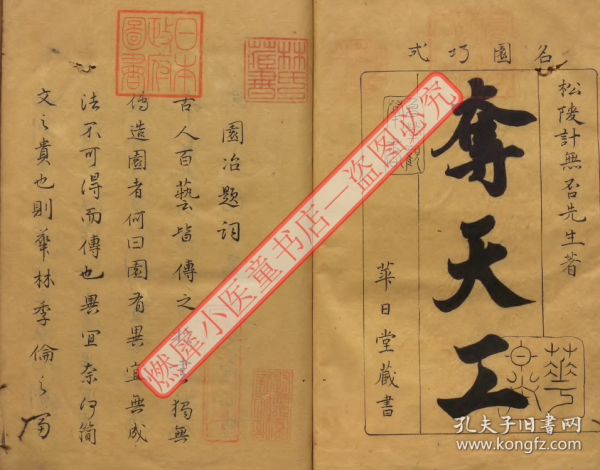 名園巧式
松陵計無否先生著
奪天工
華日堂藏書
園冶題詞
古人百藝皆傳之
獨無
傳造園者何曰園有異宜無成
法不可得而傳也異宜奈何簡
文之貴也則華林季倫之富
日本
政府
圖書
林氏
藏書
燃犀小医童书店—盗图必究
孔夫子旧书网
www.kongfz.com